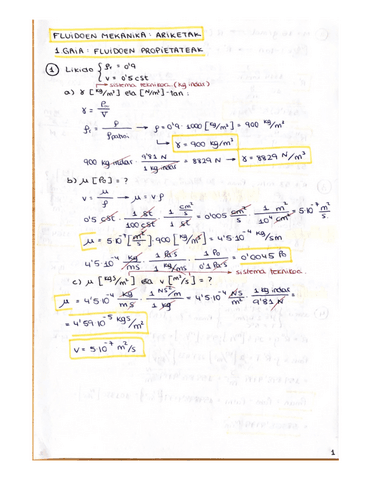 FLUIDOEN MEKANIKA: ARIKETAK
1 GAIA: FLUIDOEN PROPIETATEAK
1 Likido { ρr = 0'9
ν = 0'5 cSt
→ sistema teknikoa (kg indar)
a) γ [kg/m³] eta [N/m³]-tan:
γ = P/V
ρr = ρ/ρpatroi → ρ = 0'9 · 1000 [kg/m³] = 900 kg/m³
↳ γ = 900 kg/m³
900 kg-indar · 9'81 N / 1 kg-indar = 8829 N → γ = 8829 N/m³
b) μ [Po] = ?
ν = μ/ρ → μ = ν ρ
0'5 cSt · 1 St / 100 cSt · 1 cm²/s / 1 St = 0'005 cm²/s · 1 m² / 10⁴ cm² = 5·10⁻⁷ m²/s
μ = 5·10⁻⁷ [m²/s] · 900 [kg/m³] = 4'5·10⁻⁴ kg/sm
4'5·10⁻⁴ kg/ms · 1 Pa·s / 1 kg/ms · 1 Po / 0'1 Pa·s = 0'0045 Po
→ sistema teknikoa
c) μ [kgs/m²] eta ν [m²/s] = ?
μ = 4'5·10⁻⁴ kg/ms · 1 NS²/m / 1 kg = 4'5·10⁻⁴ NS/m² · 1 kg indar / 9'81 N =
= 4'59·10⁻⁵ kgs/m²
ν = 5·10⁻⁷ m²/s
1